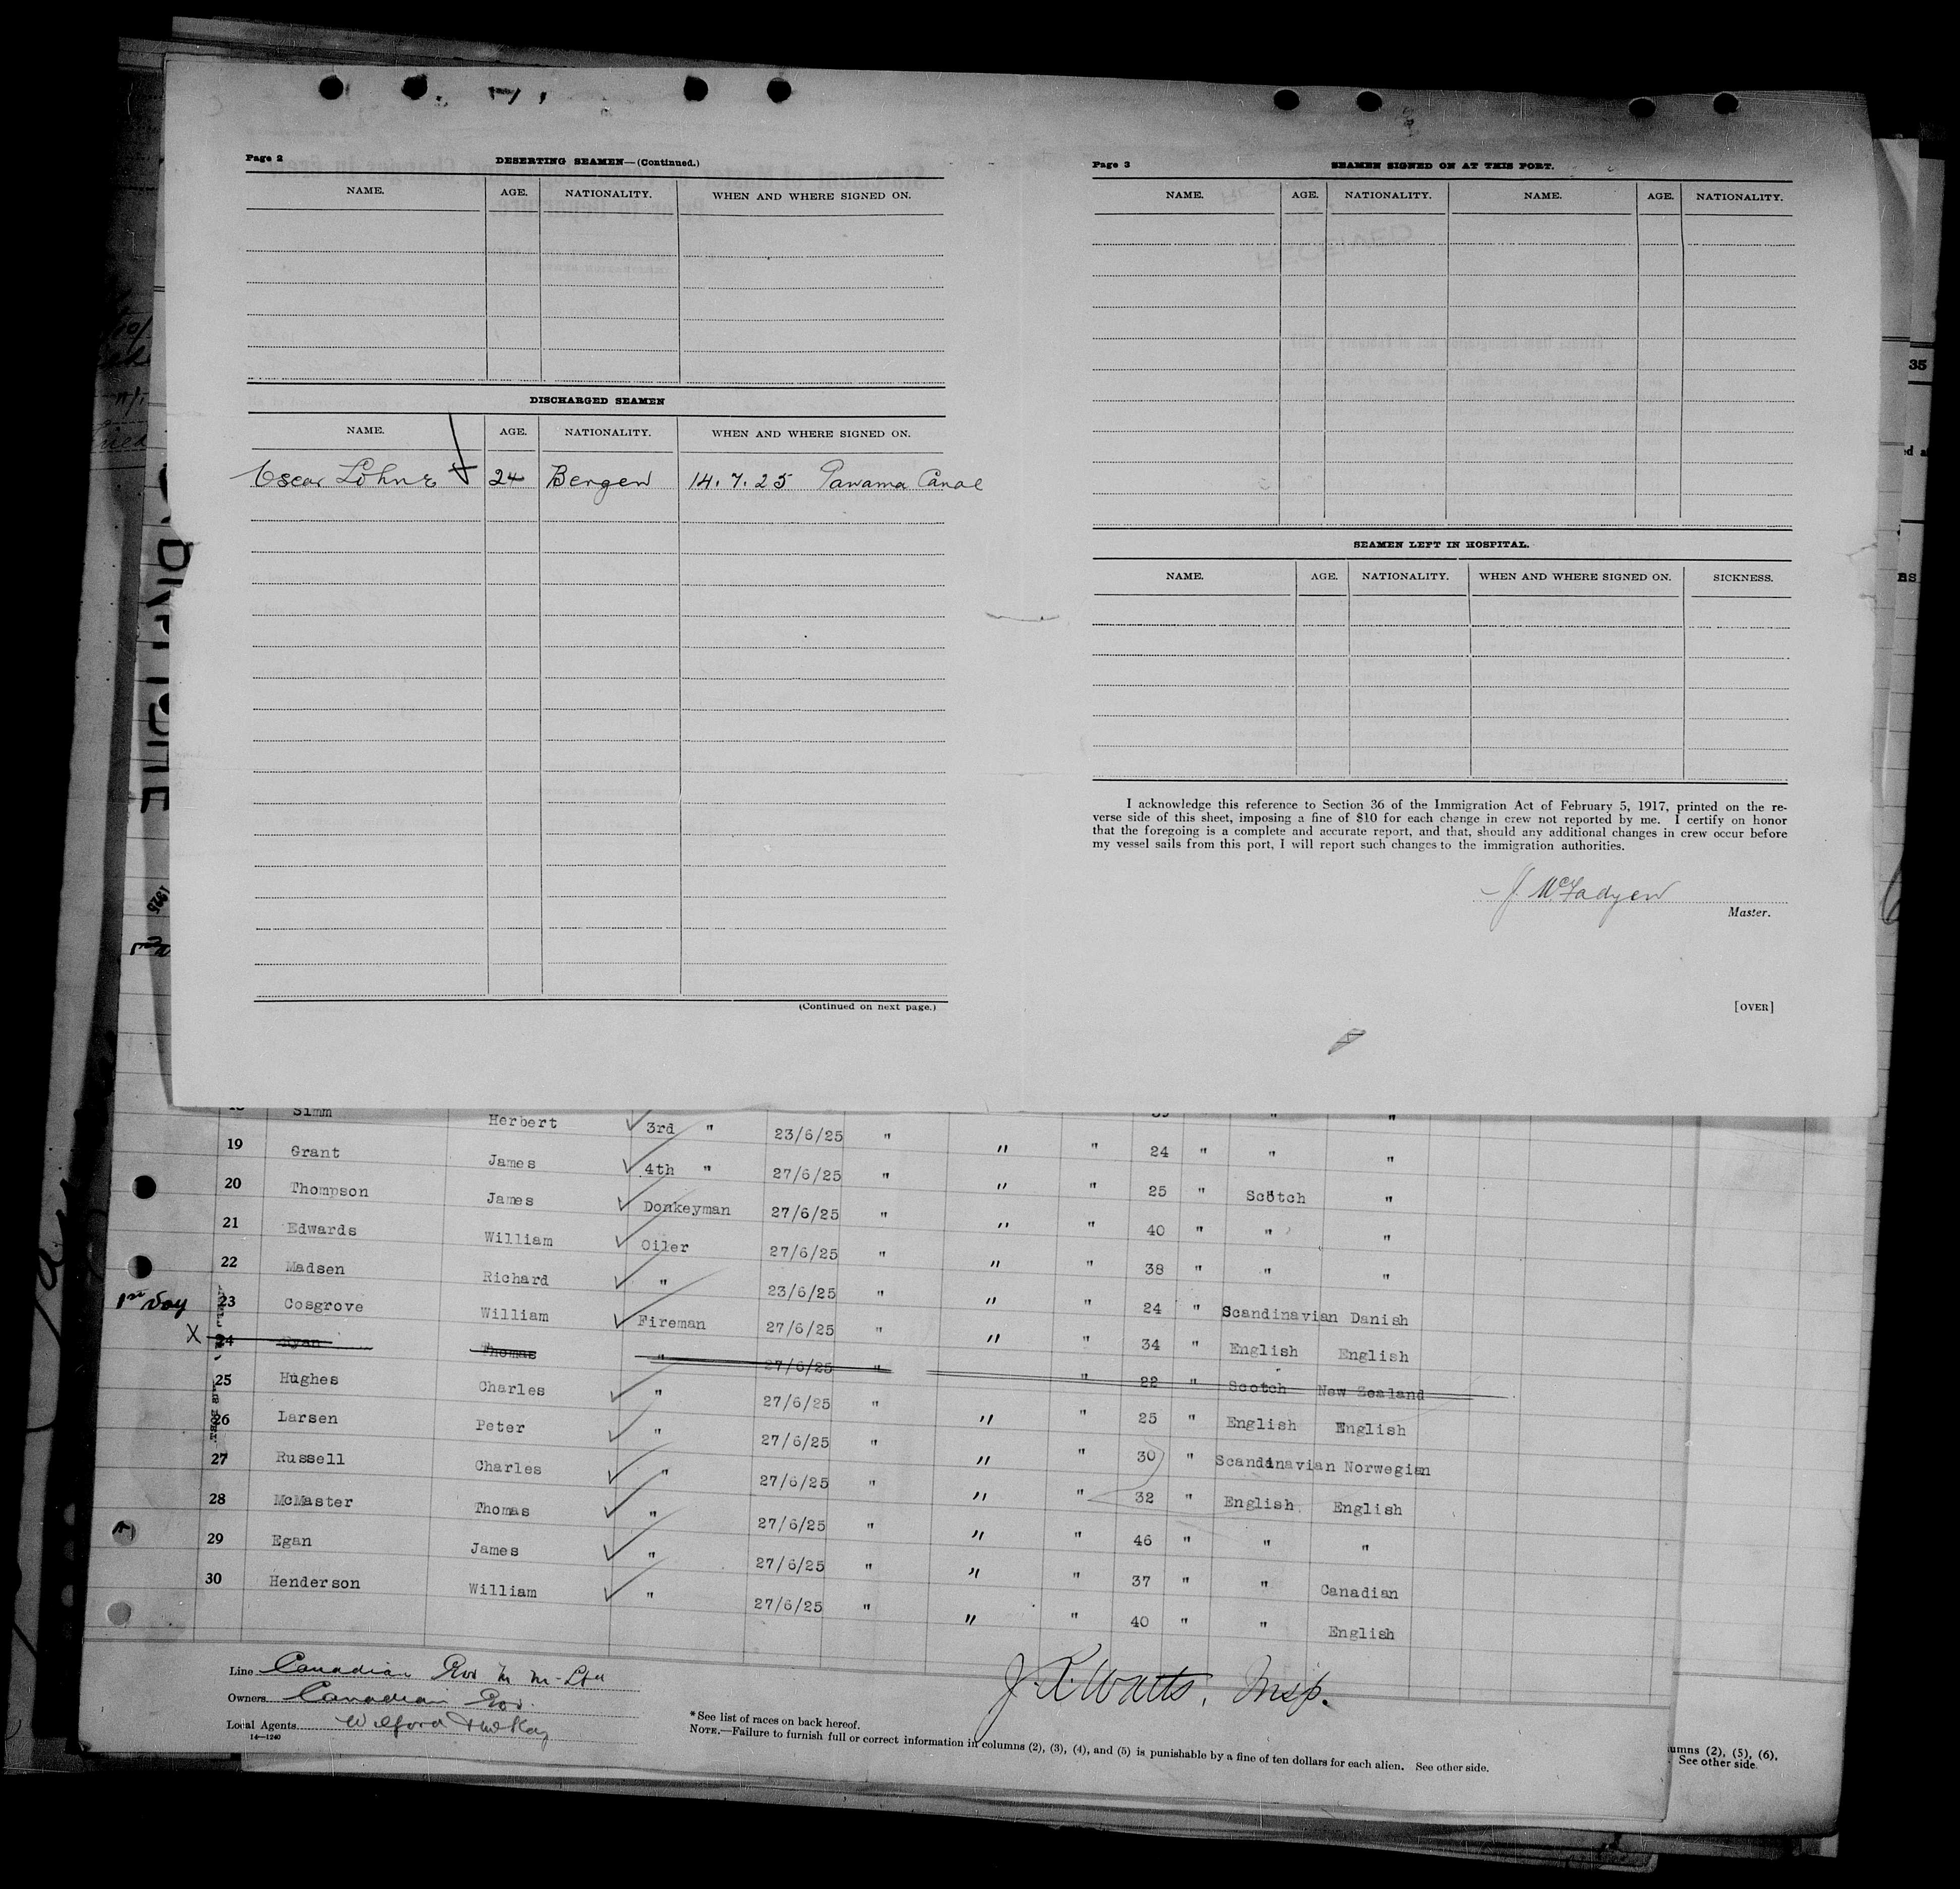 Page 2 DESERTING SEAMEN—(Continued.)
NAME. AGE. NATIONALITY. WHEN AND WHERE SIGNED ON.
DISCHARGED SEAMEN
NAME. AGE. NATIONALITY. WHEN AND WHERE SIGNED ON.
Oscar Löhne 24 Bergen 14.7.25 Panama Canal
(Continued on next page.)
Page 3 SEAMEN SIGNED ON AT THIS PORT.
NAME. AGE. NATIONALITY. NAME. AGE. NATIONALITY.
SEAMEN LEFT IN HOSPITAL.
NAME. AGE. NATIONALITY. WHEN AND WHERE SIGNED ON. SICKNESS.
I acknowledge this reference to Section 36 of the Immigration Act of February 5, 1917, printed on the re-
verse side of this sheet, imposing a fine of $10 for each change in crew not reported by me. I certify on honor
that the foregoing is a complete and accurate report, and that, should any additional changes in crew occur before
my vessel sails from this port, I will report such changes to the immigration authorities.
J. McFadyen
Master.
[OVER]
35
18 Simm Herbert 3rd " 23/6/25 " " " 24 " " "
19 Grant James 4th " 27/6/25 " " " 25 " Scotch "
20 Thompson James Donkeyman 27/6/25 " " " 40 " " "
21 Edwards William Oiler 27/6/25 " " " 38 " " "
22 Madsen Richard " 23/6/25 " " " 24 " Scandinavian Danish
1st Voy 23 Cosgrove William Fireman 27/6/25 " " " 34 " English English
X 24 Ryan Thomas " 27/6/25 " " 22 " Scotch New Zealand
25 Hughes Charles " 27/6/25 " " " 25 " English English
26 Larsen Peter " 27/6/25 " " " 30 " Scandinavian Norwegian
27 Russell Charles " 27/6/25 " " " 32 " English English
28 McMaster Thomas " 27/6/25 " " " 46 " " "
29 Egan James " 27/6/25 " " " 37 " " Canadian
30 Henderson William " 27/6/25 " " " 40 " " English
Line Canadian Gov M M Ltd
Owners Canadian Gov.
Local Agents
14—1240
J. R. Watts, Insp.
* See list of races on back hereof.
NOTE.—Failure to furnish full or correct information in columns (2), (3), (4), and (5) is punishable by a fine of ten dollars for each alien. See other side.
umns (2), (5), (6),
See other side.